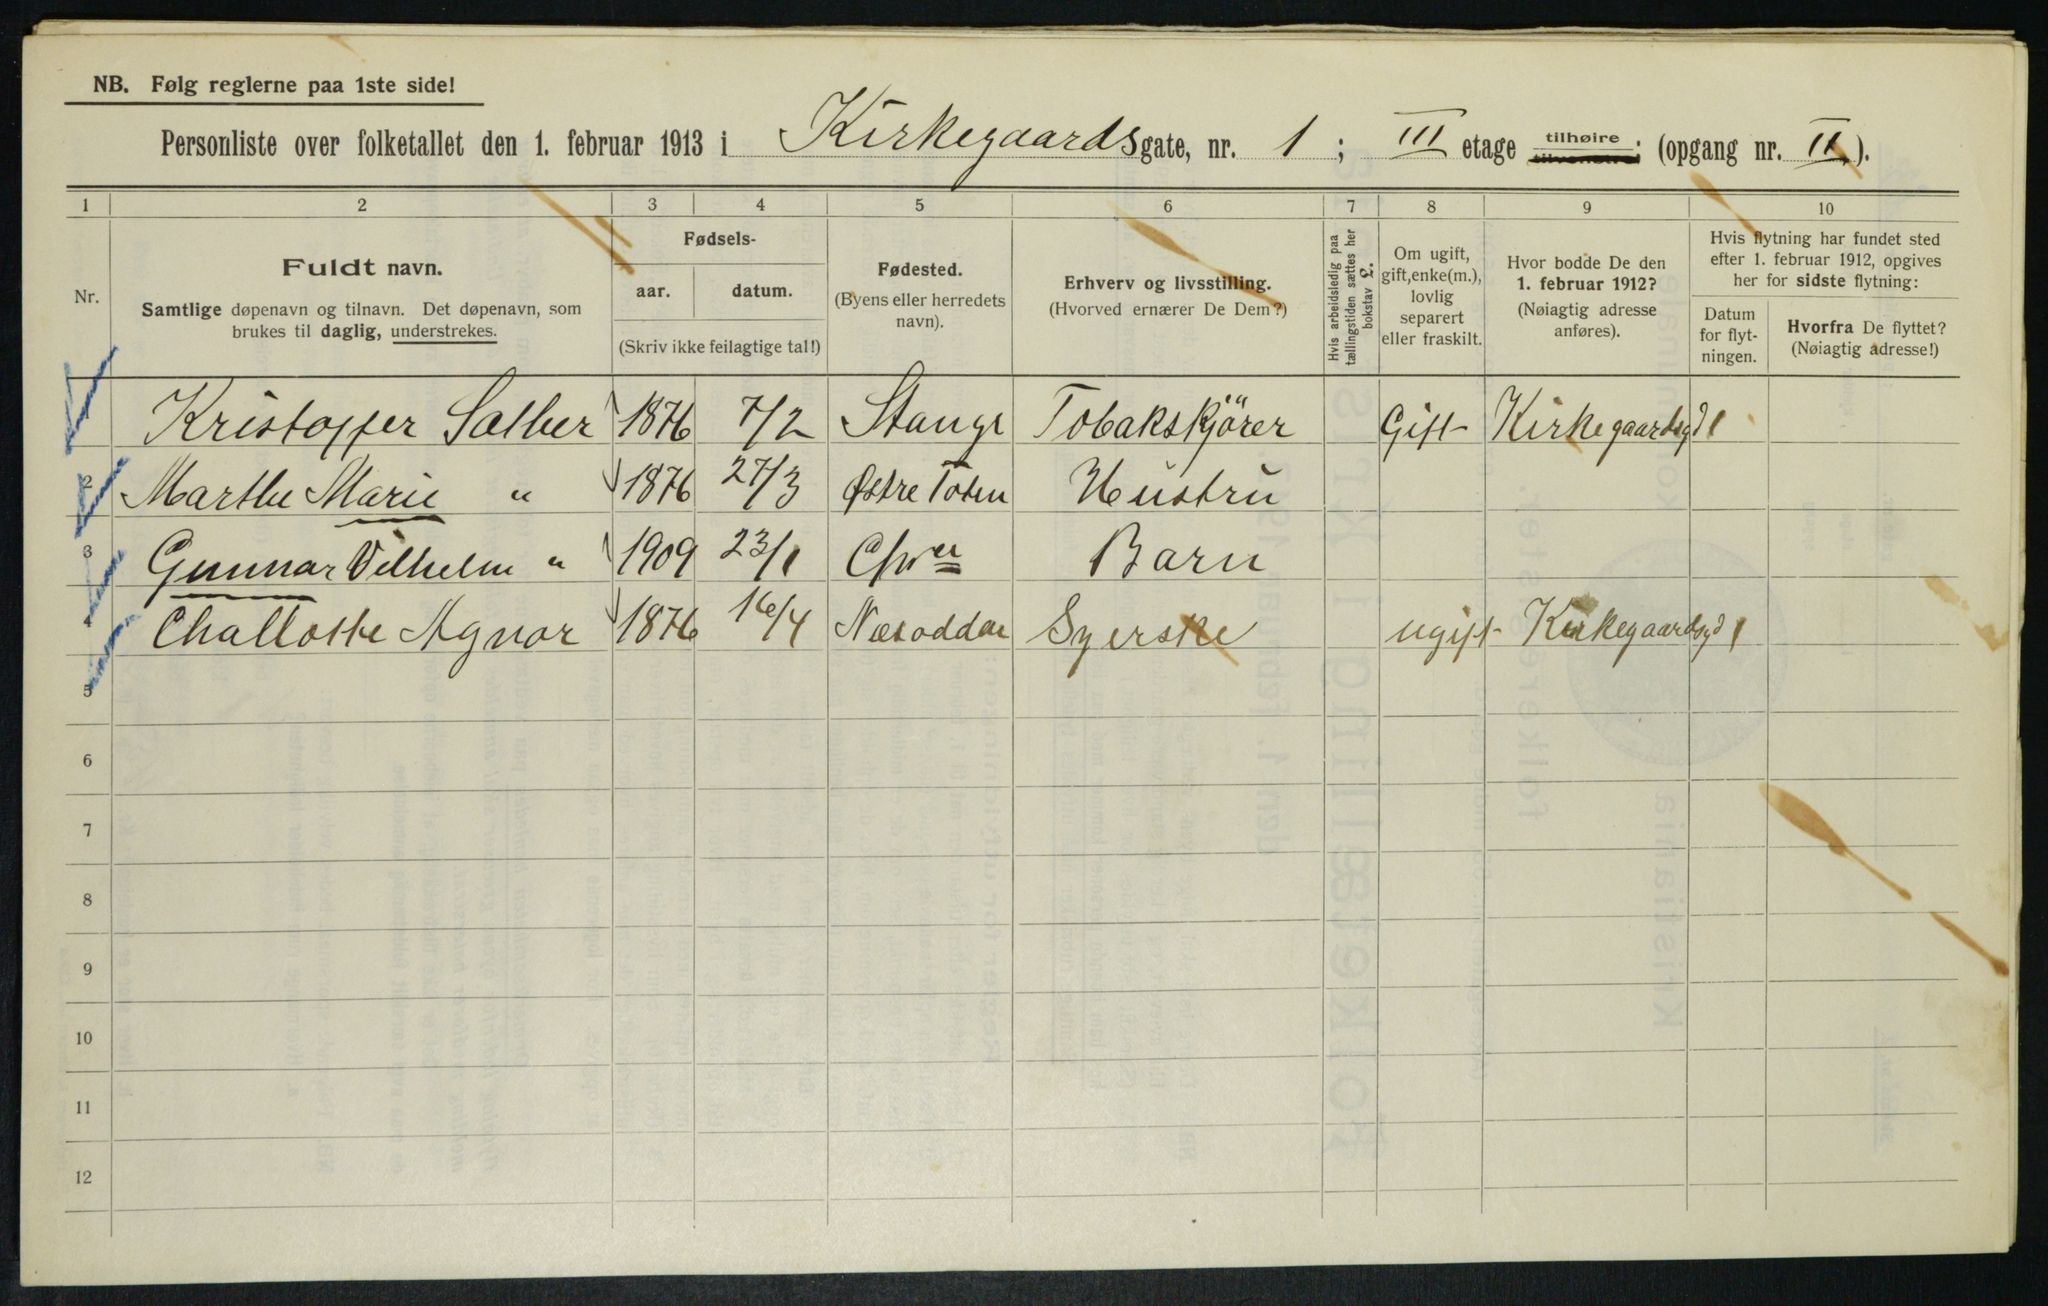 NB. Følg reglerne paa 1ste side!
Personliste over folketallet den 1. februar 1913 i Kirkegaardsgate, nr. 1; III etage tilhøire tilvenstre: (opgang nr. II).
1 2 3 4 5 6 7 8 9 10
Nr.
Fuldt navn.
Samtlige døpenavn og tilnavn. Det døpenavn, som
brukes til daglig, understrekes.
Fødsels-
aar. datum.
(Skriv ikke feilagtige tal!)
Fødested.
(Byens eller herredets
navn).
Erhverv og livsstilling.
(Hvorved ernærer De Dem?)
Hvis arbeidsledig paa
tællingstiden sættes her
bokstav £.
Om ugift,
gift, enke(m.),
lovlig
separert
eller fraskilt.
Hvor bodde De den
1. februar 1912?
(Nøiagtig adresse
anføres).
Hvis flytning har fundet sted
efter 1. februar 1912, opgives
her for sidste flytning:
Datum
for flyt-
ningen.
Hvorfra De flyttet?
(Nøiagtig adresse!)
Kristoffer Sælber 1876 7/2 Stange Tobakskjörer Gift Kirkegaardsgd 1
2 Marthe Marie " 1876 27/3 Østre Toten Hustru
3 Gunnar Vilhelm " 1909 23/1 Chr a Barn
4 Challotte Agnor 1876 16/4 Næsodden Syerske ugift Kirkegaardsgd 1
5
6
7
8
9
10
11
12